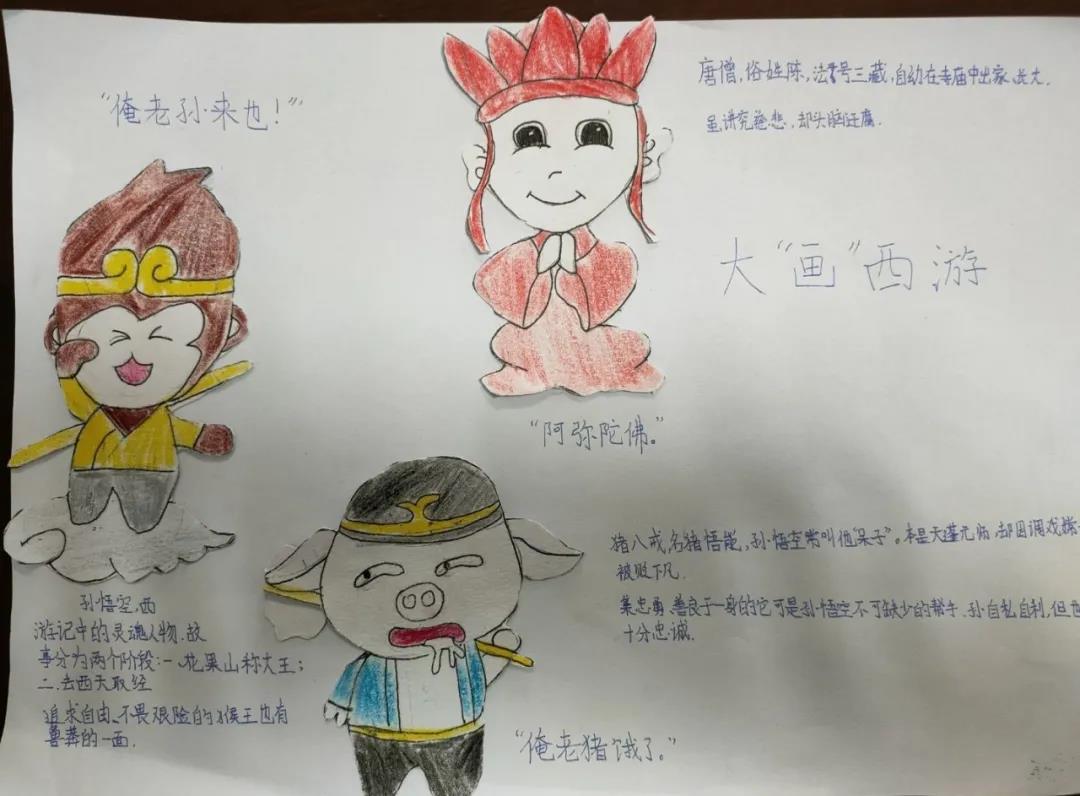 “俺老孙来也！”
唐僧，俗姓陈，法号三藏，自幼在寺庙中出家、长大．
虽讲究慈悲，却头脑迂腐．
大“画”西游
“阿弥陀佛。”
孙悟空，西
游记中的灵魂人物．故
事分为两个阶段：一、花果山称大王；
二．去西天取经
追求自由、不畏艰险的猴王也有
鲁莽的一面．
猪八戒，名猪悟能，孙悟空常叫他“呆子”。本是天蓬元帅，却因调戏嫦
被贬下凡．
集忠勇、善良于一身的它可是孙悟空不可缺少的帮手．孙自私自利，但也
十分忠诚．
“俺老猪饿了。”